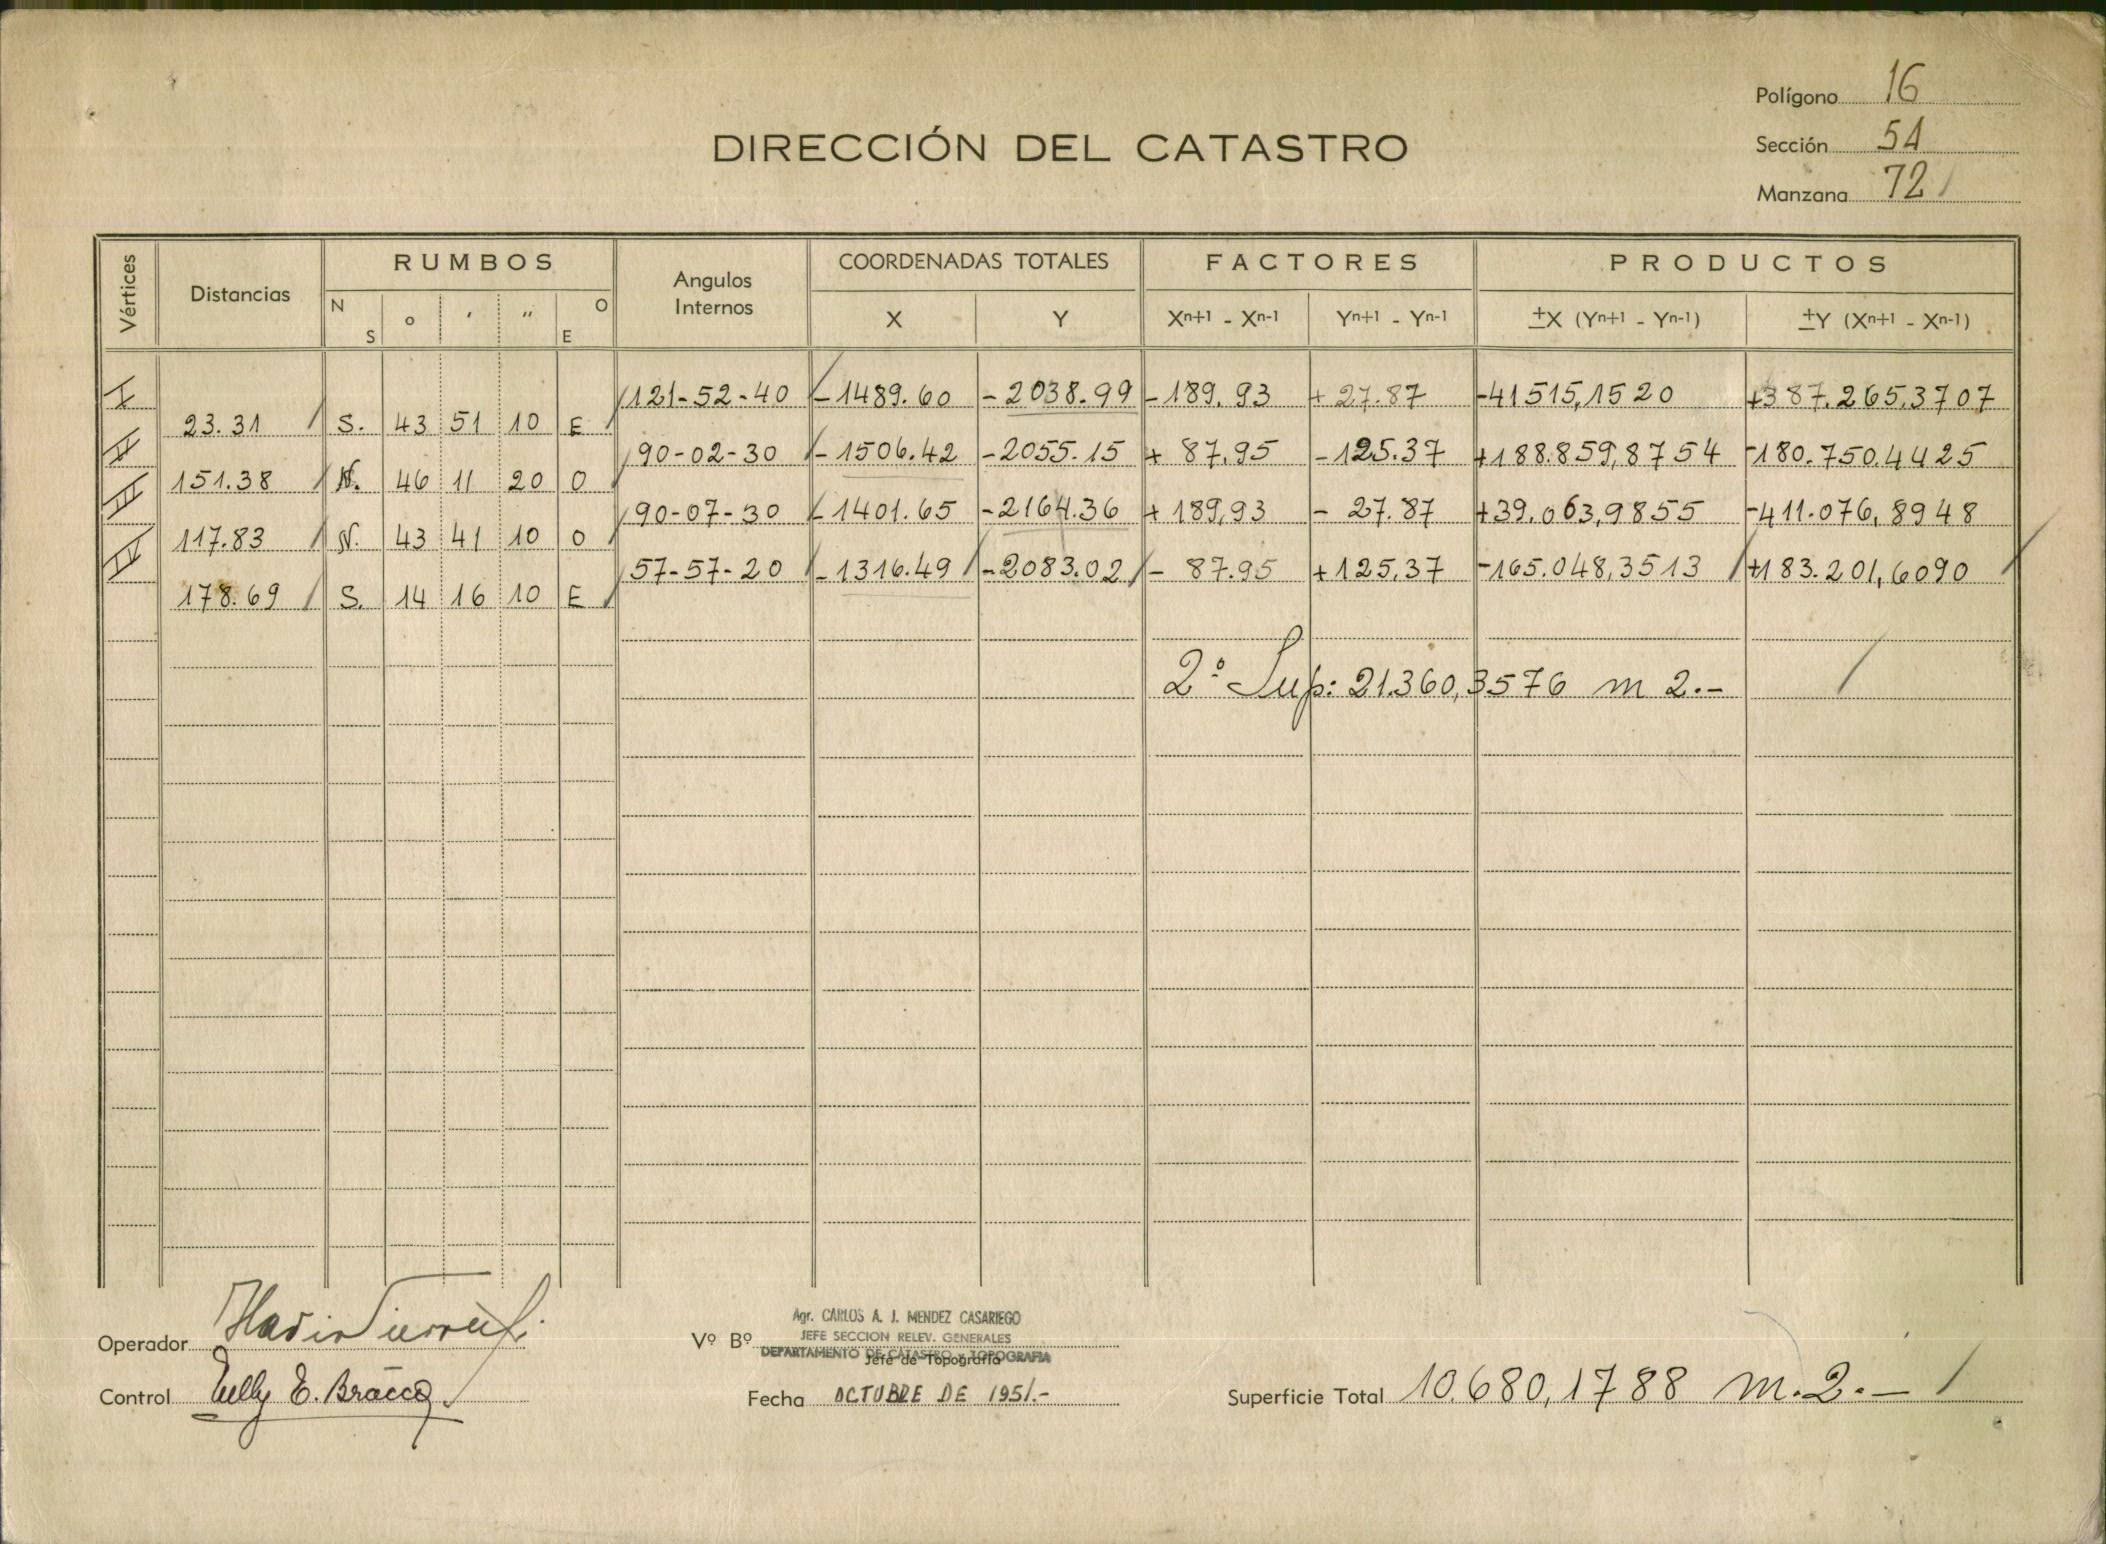 Polígono 16
DIRECCIÓN DEL CATASTRO
Sección 51
Manzana 72
Vértices Distancias RUMBOS Angulos Internos COORDENADAS TOTALES FACTORES PRODUCTOS
N S o ′ ″ O E X Y Xn+1 - Xn-1 Yn+1 - Yn-1 ±X (Yn+1 - Yn-1) ±Y (Xn+1 - Xn-1)
I 121-52-40 -1489.60 -2038.99 -189.93 +27.87 -41515,1520 +387.265,3707
23.31 S. 43 51 10 E
II 90-02-30 -1506.42 -2055.15 + 87,95 -125.37 +188.859,8754 -180.750,4425
151.38 N. 46 11 20 O
III 90-07-30 -1401.65 -2164.36 + 189,93 - 27.87 +39.063,9855 -411.076,8948
117.83 N. 43 41 10 O
IV 57-57-20 -1316.49 -2083.02 - 87.95 +125,37 -165.048,3513 +183.201,6090
178.69 S. 14 16 10 E
2º Sup: 21.360,3576 m 2.-
Agr. CARLOS A. J. MENDEZ CASARIEGO
Operador Vº Bº JEFE SECCION RELEV. GENERALES
DEPARTAMENTO DE CATASTRO y TOPOGRAFIA
Jefe de Topografía
Control Nelly E. Bracco Fecha OCTUBRE DE 1951.- Superficie Total 10.680,1788 m.2.-